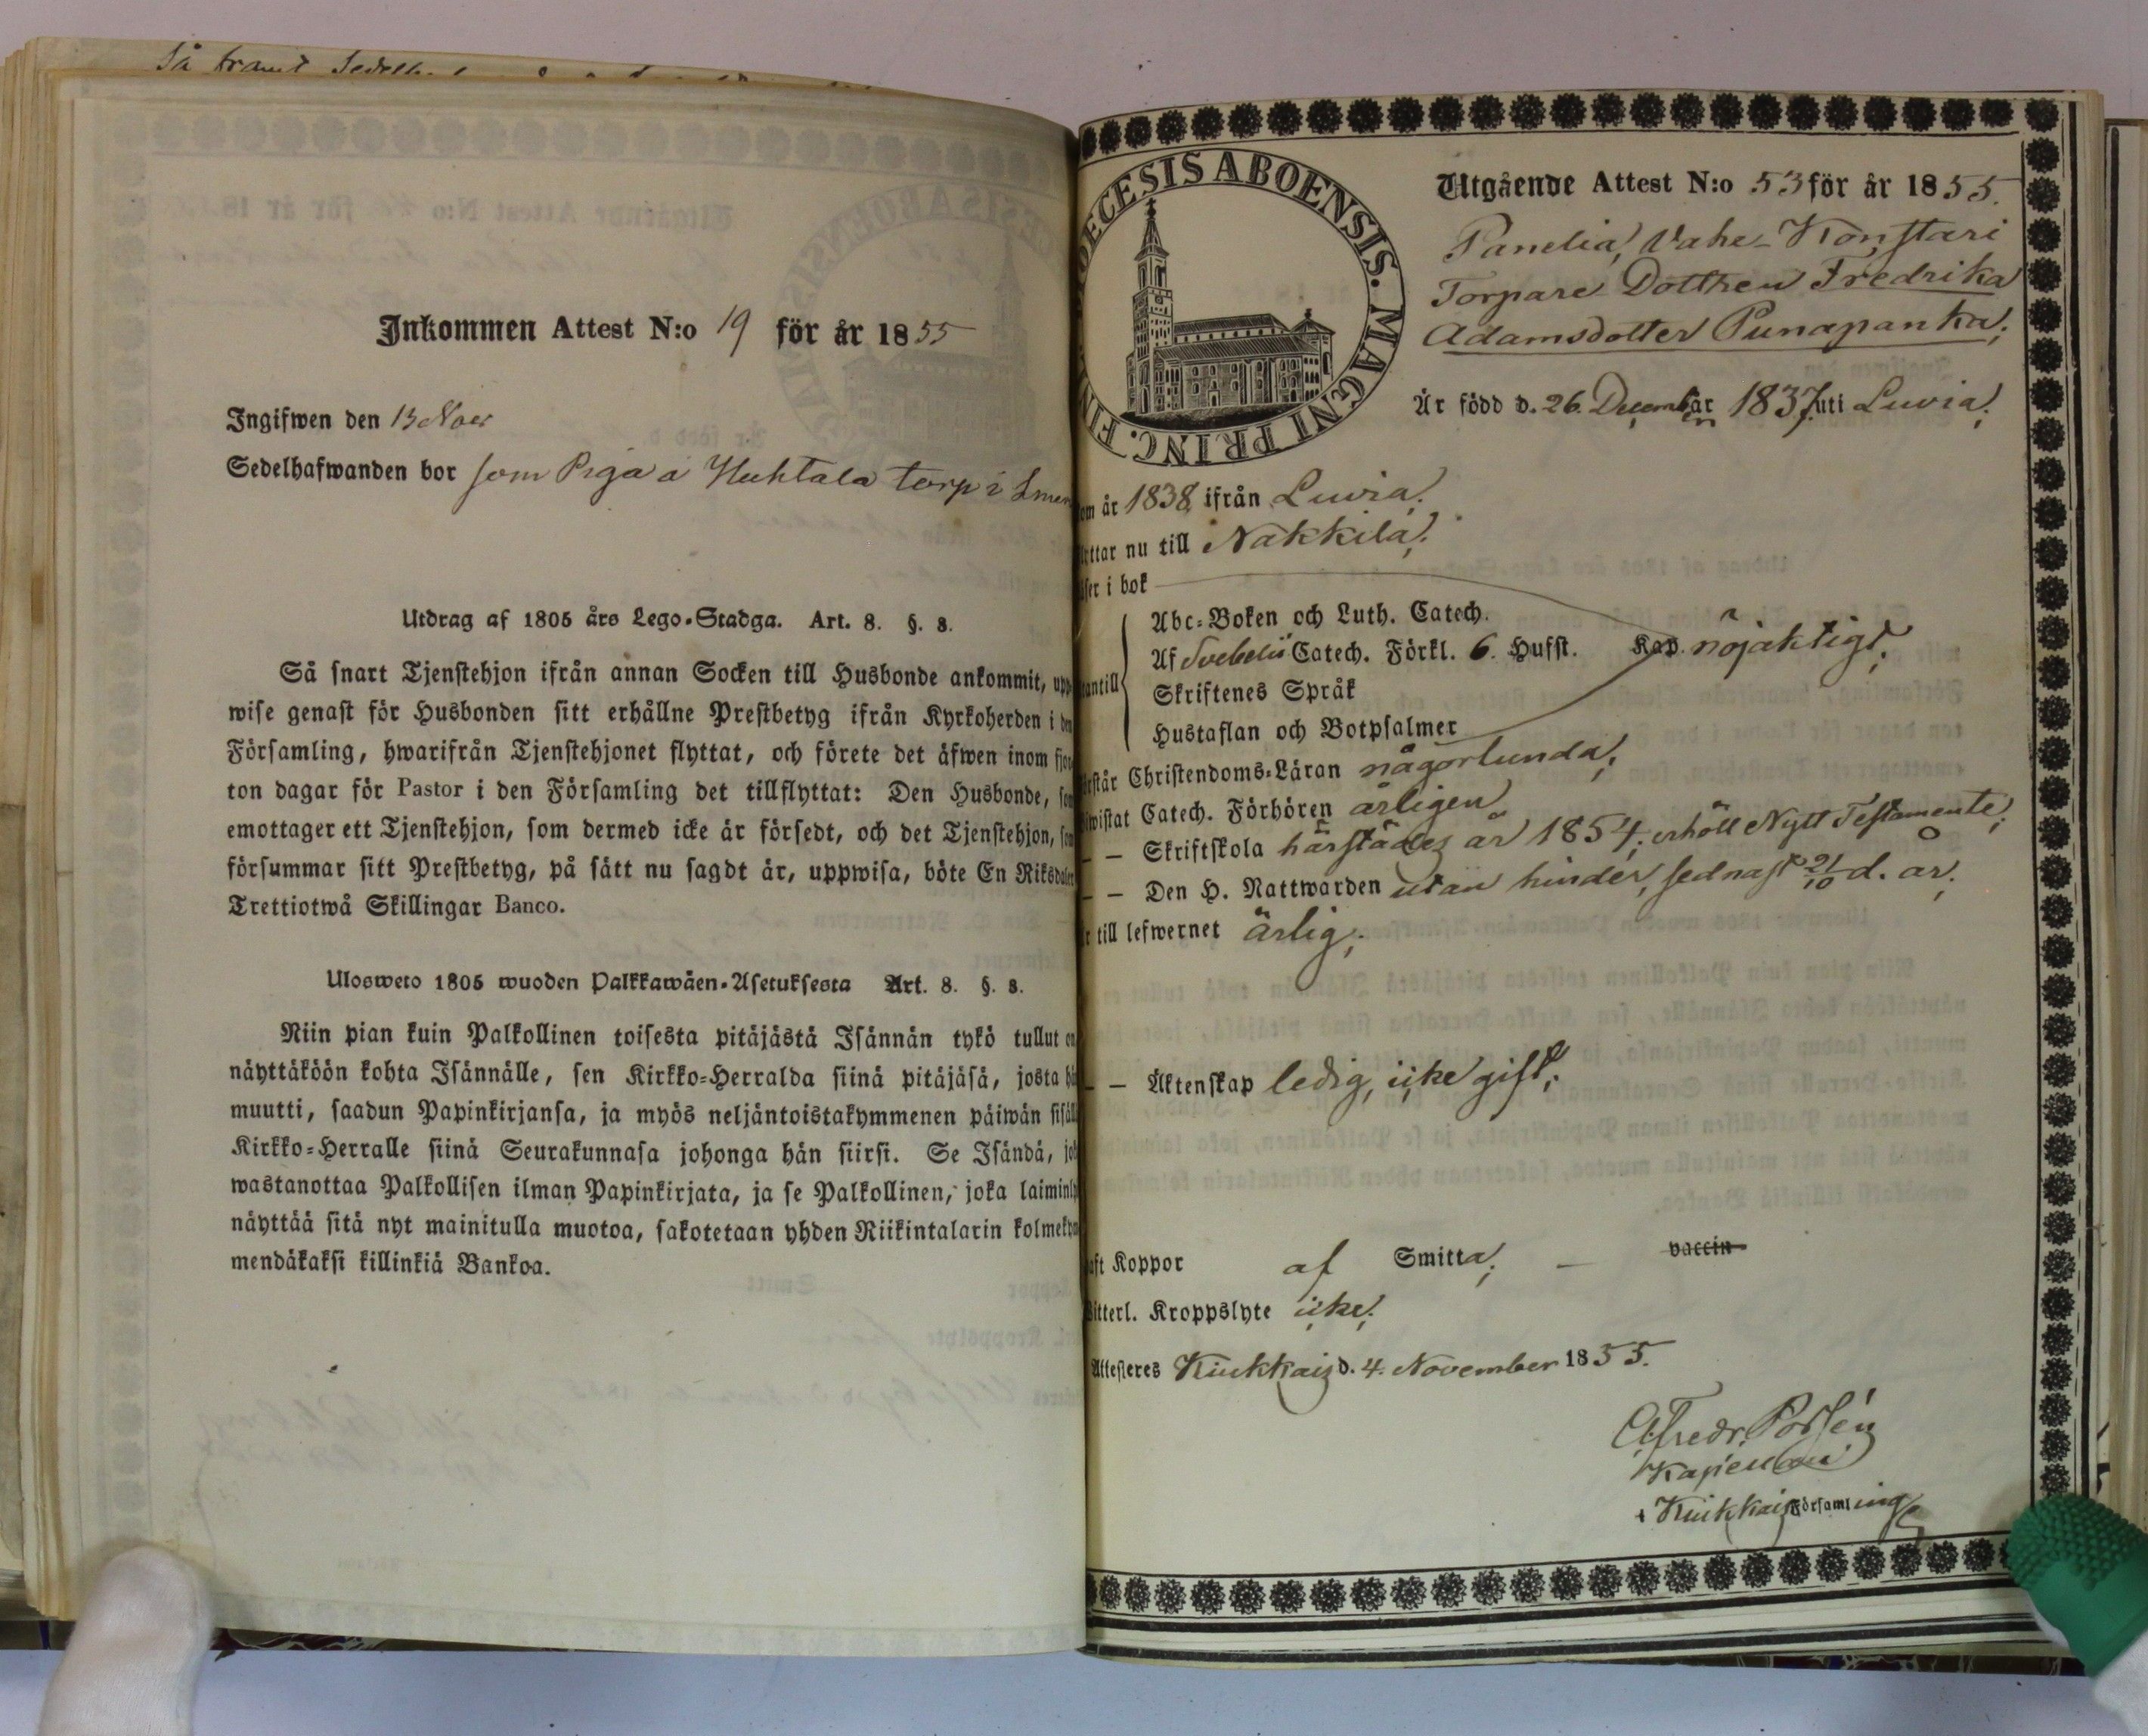 Så framt Sedelh
Inkommen Attest N:o 19 för år 1855
Ingifwen den 13 Nover
Sedelhafwanden bor som Piga å Huhtala torp i
Utdrag af 1805 års Lego-Stadga. Art. 8. §. 8.
Så snart Tjenstehjon ifrån annan Socken till Husbonde ankommit, upp-
wise genast för Husbonden sitt erhållne Prestbetyg ifrån Kyrkoherden i den
Församling, hwarifrån Tjenstehjonet flyttat, och förete det äfwen inom fjor-
ton dagar för Pastor i den Församling det tillflyttat: Den Husbonde, som
emottager ett Tjenstehjon, som dermed icke är försedt, och det Tjenstehjon, som
försummar sitt Prestbetyg, på sätt nu sagdt är, uppwisa, böte En Riksdaler
Trettiotwå Skillingar Banco.
Ulosweto 1805 wuoden Palkkawäen-Asetuksesta Art. 8. §. 8.
Niin pian kuin Palkollinen toisesta pitäjästä Isännän tykö tullut on
näyttäköön kohta Isännälle, sen Kirkko-Herralda siinä pitäjäsä, josta hän
muutti, saadun Papinkirjansa, ja myös neljäntoistakymmenen päiwän sisällä
Kirkko-Herralle siinä Seurakunnasa johonga hän siirsi. Se Isändä, jok
wastanottaa Palkollisen ilman Papinkirjata, ja se Palkollinen, joka laiminly
näyttää sitä nyt mainitulla muotoa, sakotetaan yhden Riikintalarin kolmekym
mendäkaksi killinkiä Bankoa.
OECESIS ABOENSIS. MAGNI PRINC. FIN
Utgående Attest N:o 53 för år 1855.
Panelia, Vahe-Konstari
Torpare Dottren Fredrika
Adamsdotter Punapanka;
Är född d. 26. December 1837. uti Luvia;
om år 1838 ifrån Luvia;
yttar nu till Nakkila;
äser i bok
Abc-Boken och Luth. Catech.
Af Svebelii Catech. Förkl. 6. Hufst. Kap. nöjaktigt;
antill Skriftenes Språk
Hustaflan och Botpsalmer
rstår Christendoms-Läran någorlunda;
iwistat Catech. Förhören årligen
— — Skriftskola härstädes år 1854; erhöll Nytt Testamente;
— — Den H. Nattwarden utan hinder, sednast 21/10 d. år;
r till lefwernet ärlig;
— — Äktenskap ledig, icke gift;
aft Koppor af Smitta; — vaccin
itterl. Kroppslyte icke;
Attesteres Kiukkais d. 4. November 1855.
Alfredr. Porsén
Kapellan
i Kiukkais Församling